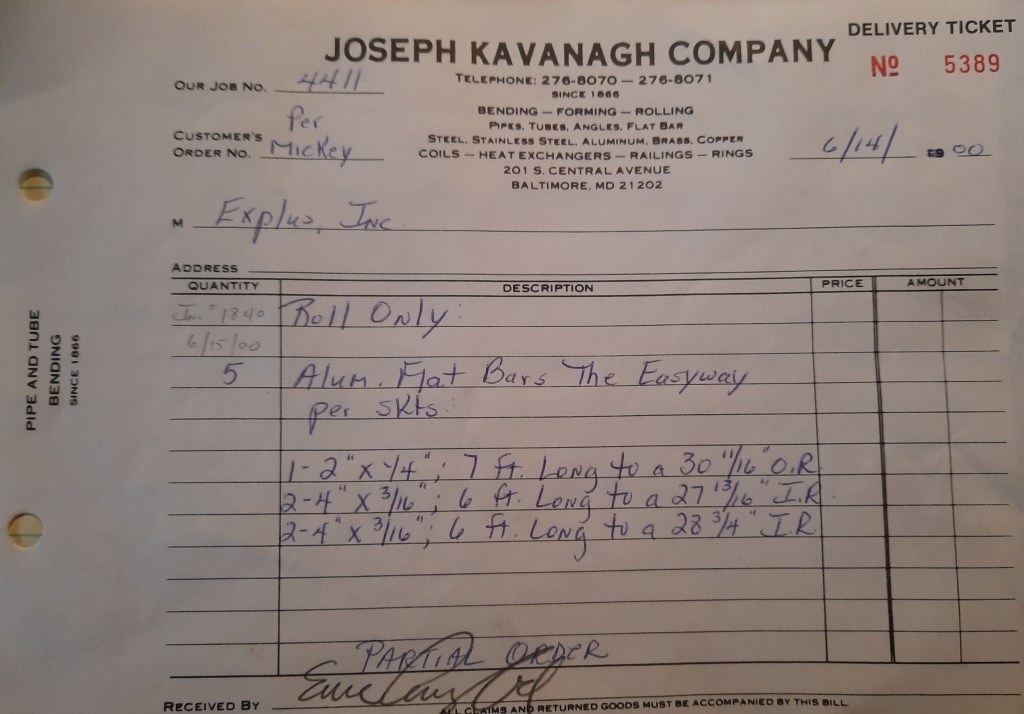 DELIVERY TICKET
JOSEPH KAVANAGH COMPANY
Nº 5389
OUR JOB NO. 4411
TELEPHONE: 276-8070 — 276-8071
SINCE 1866
BENDING — FORMING — ROLLING
PIPES, TUBES, ANGLES, FLAT BAR
STEEL, STAINLESS STEEL, ALUMINUM, BRASS, COPPER
COILS — HEAT EXCHANGERS — RAILINGS — RINGS
201 S. CENTRAL AVENUE
BALTIMORE, MD 21202
Per
CUSTOMER'S
ORDER NO. Mickey
6/14/ 00
M Explus, Inc.
ADDRESS
QUANTITY DESCRIPTION PRICE AMOUNT
Inv. # 1840 Roll Only:
6/15/00
5 Alum. Flat Bars The Easyway
per skts.
1-2" x 1/4"; 7 ft. Long to a 30 11/16" O.R.
2-4" x 3/16"; 6 ft. Long to a 27 13/16" I.R.
2-4" x 3/16"; 6 ft. Long to a 28 3/4" I.R.
PARTIAL ORDER
RECEIVED BY
ALL CLAIMS AND RETURNED GOODS MUST BE ACCOMPANIED BY THIS BILL
PIPE AND TUBE
BENDING
SINCE 1866